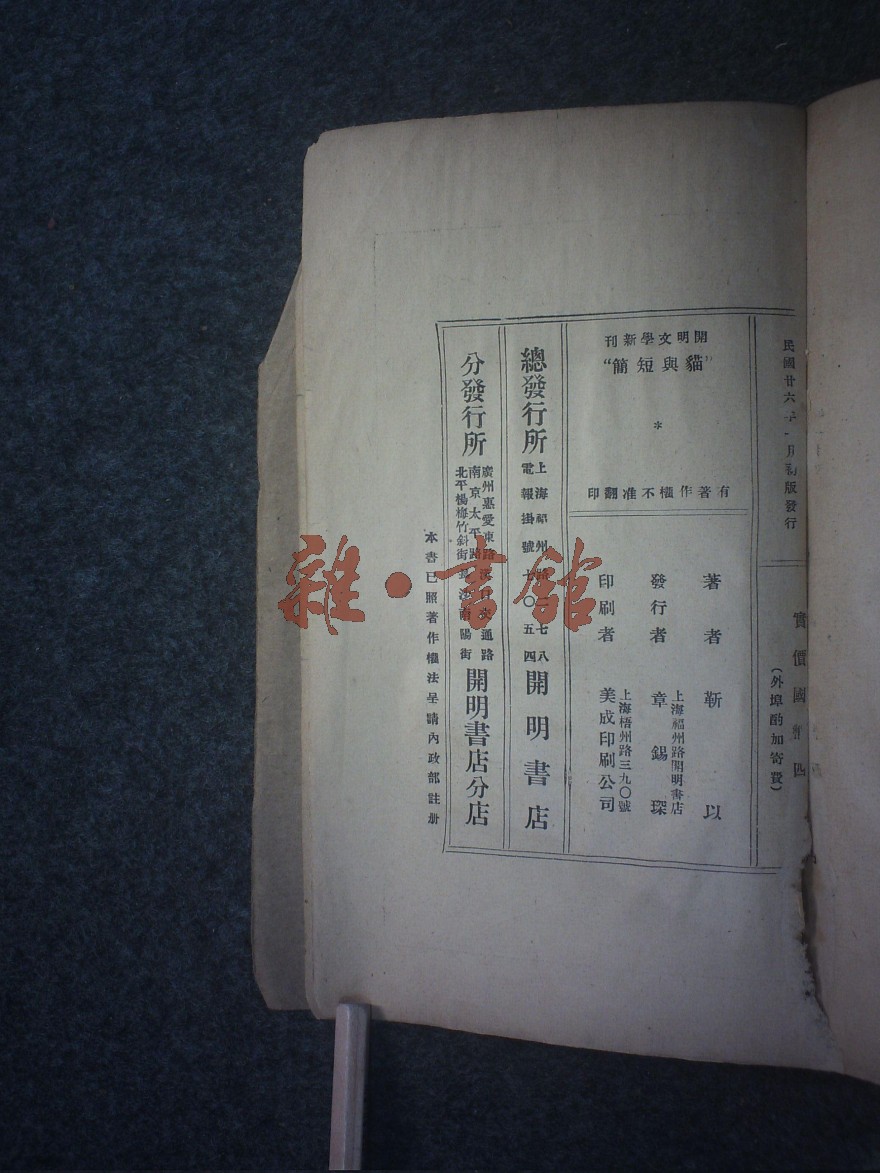 民國廿六年一月初版發行
實價國幣四
(外埠酌加寄費)
開明文學新刊
“貓與短簡”
*
有著作權不准翻印
著者 靳以
發行者 章錫琛
上海福州路開明書店
印刷者 美成印刷公司
上海梧州路三九〇號
總發行所 上海福州路 七八 開明書店
電報掛號七〇五四
分發行所
廣州惠愛東路漢口交通路
南京太平路
北平楊梅竹斜街長沙南陽街
開明書店分店
本書已照著作權法呈請內政部註册
雜·書館